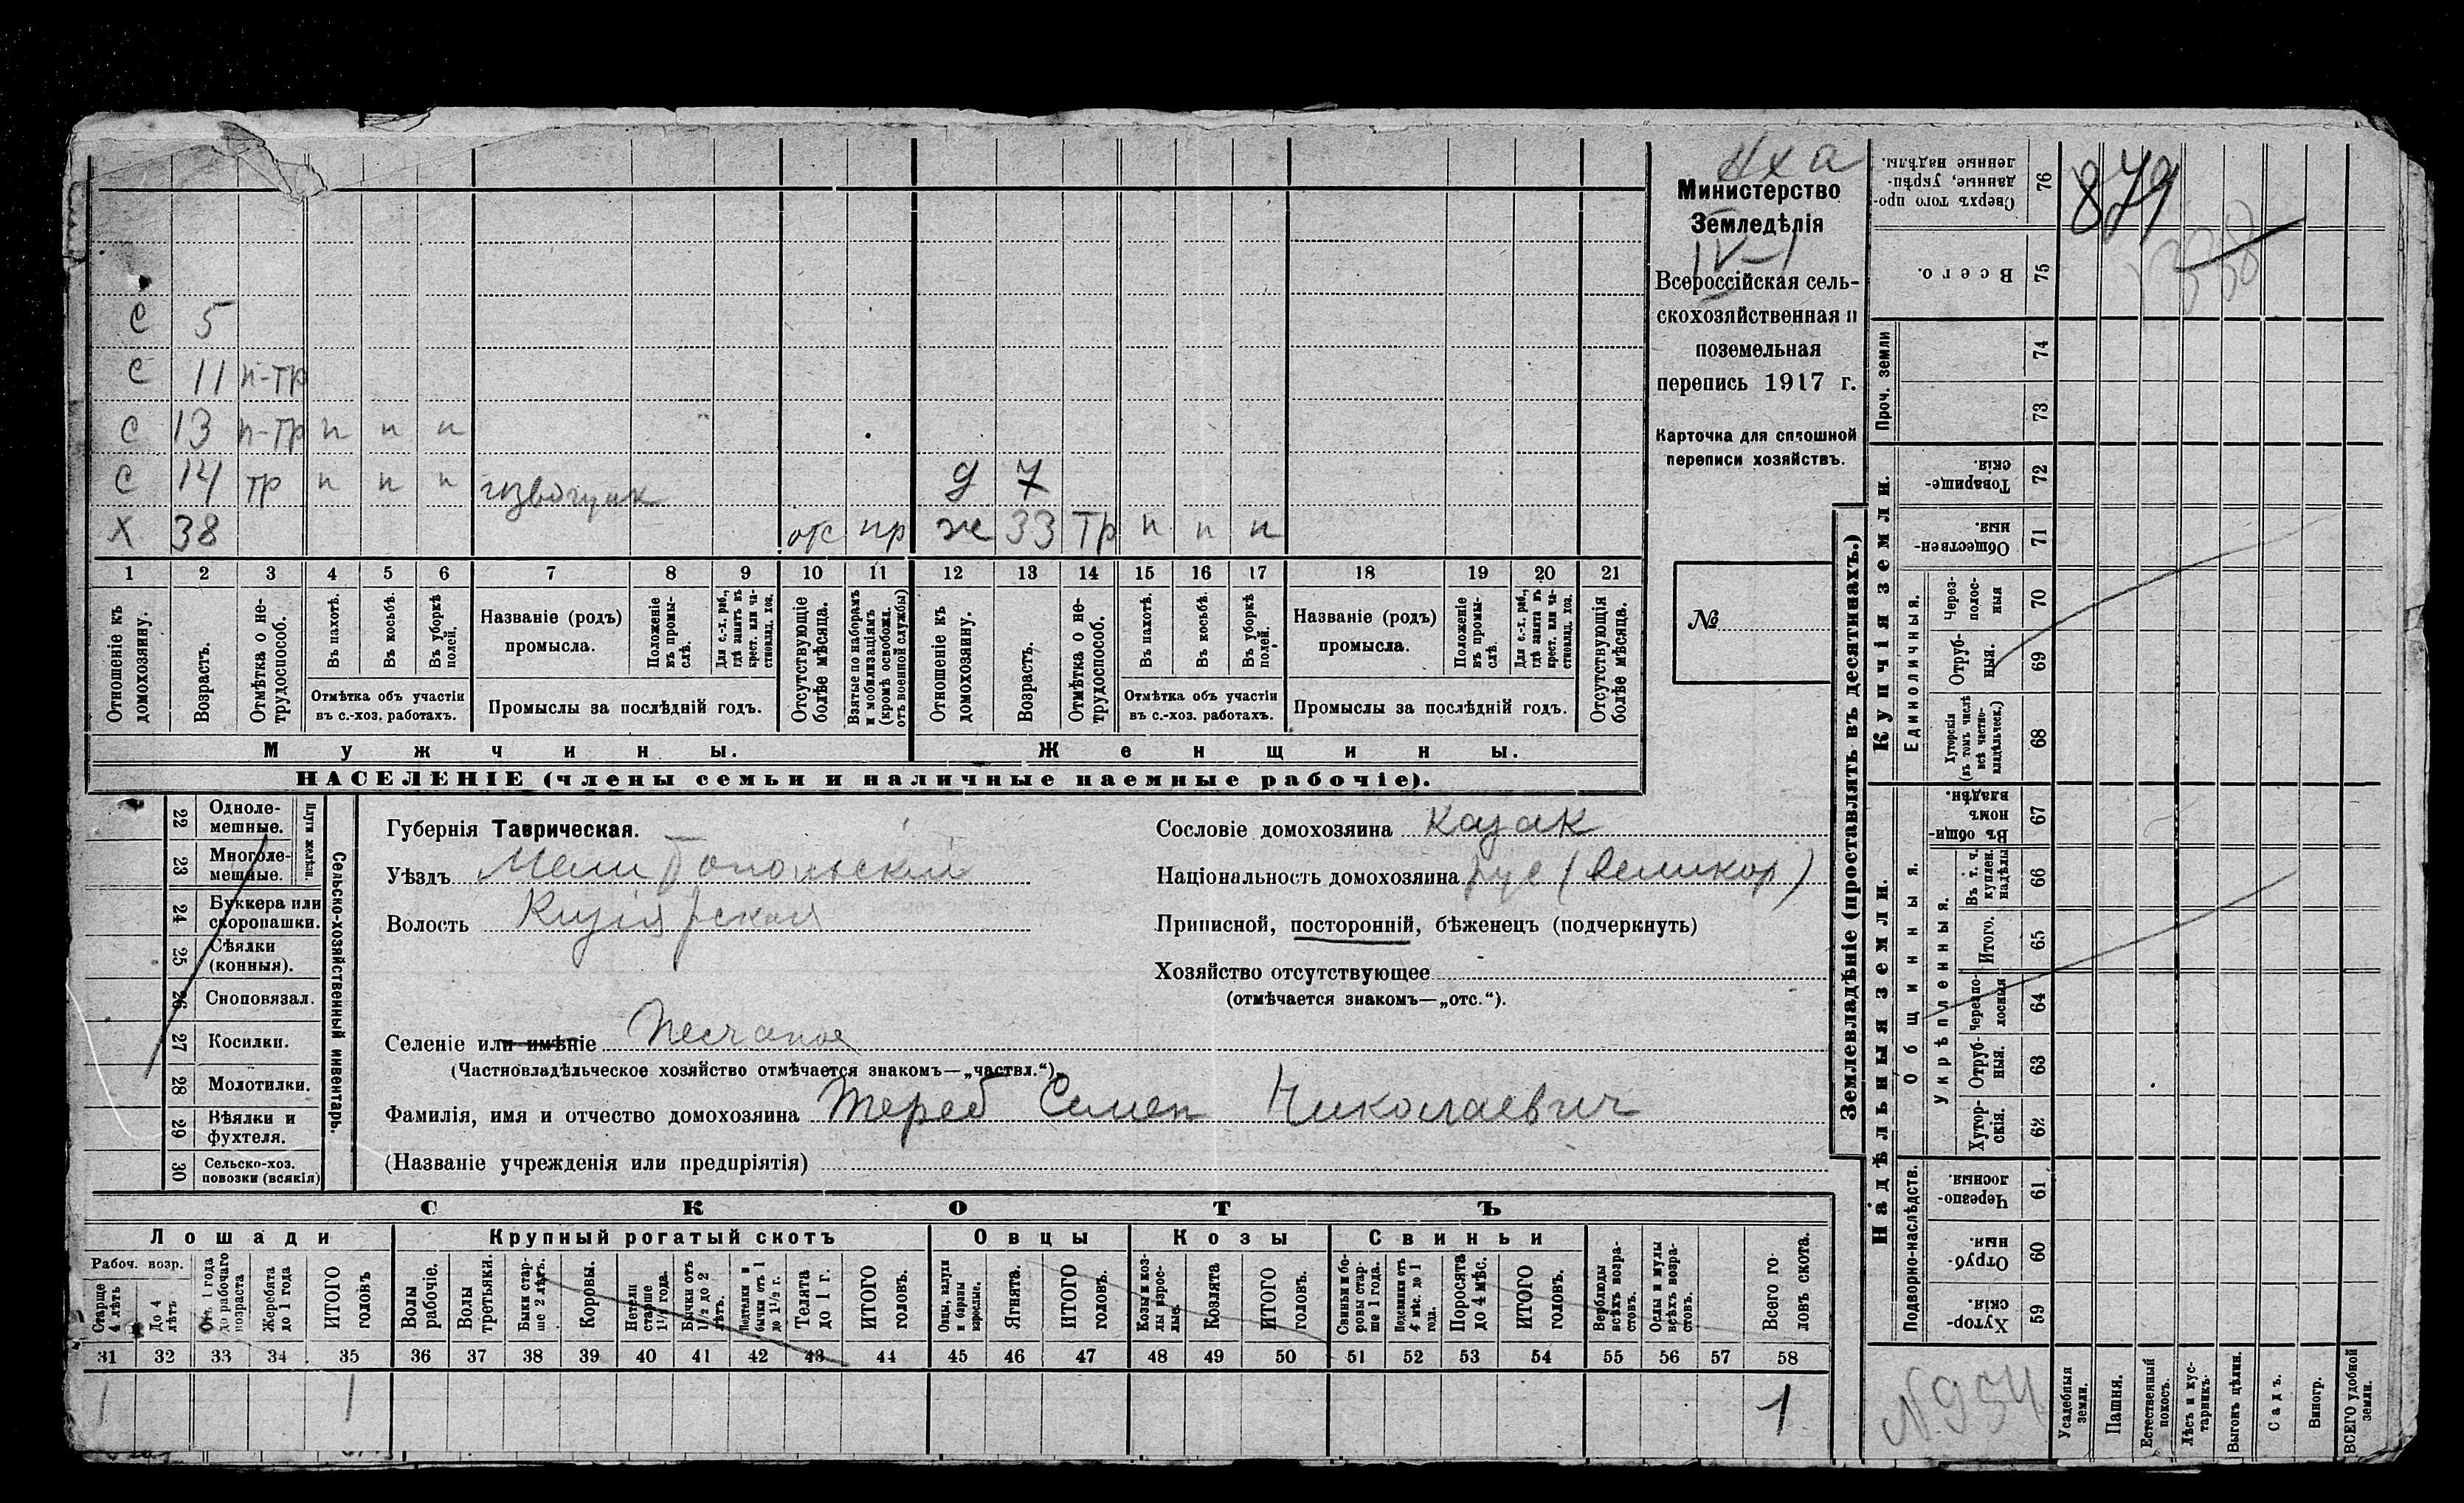 Министерство
Земледѣлія
IV-1
Всероссійская сель-
скохозяйственная и
поземельная
перепись 1917 г.
Карточка для сплошной
переписи хозяйствъ.
№
С 5
С 11 п-тр
С 13 п-тр п п п
С 14 тр п п п извощик д 7
Х 38 отс пр ж 33 тр п п п
1 2 3 4 5 6 7 8 9 10 11 12 13 14 15 16 17 18 19 20 21
Отношеніе къ домохозяину.
Возрастъ.
Отмѣтка о не-трудоспособ.
Въ пахотѣ.
Въ косьбѣ.
Въ уборкѣ полей.
Отмѣтка объ участіи въ с.-хоз. работахъ.
Названіе (родъ) промысла.
Положеніе въ промы-слѣ.
Для с.-х. раб., гдѣ занятъ въ крест. или ча-стновлад. хоз.
Промыслы за послѣдній годъ.
Отсутствующіе болѣе мѣсяца.
Взятые по наборамъ и мобилизаціямъ (кромѣ освобожд. отъ военной службы)
Отношеніе къ домохозяину.
Возрастъ.
Отмѣтка о не-трудоспособ.
Въ пахотѣ.
Въ косьбѣ.
Въ уборкѣ полей.
Отмѣтка объ участіи въ с.-хоз. работахъ.
Названіе (родъ) промысла.
Положеніе въ промы-слѣ.
Для с.-х. раб., гдѣ занятъ въ крест. или ча-стновлад. хоз.
Промыслы за послѣдній годъ.
Отсутствующія болѣе мѣсяца.
Мужчины. Женщины.
НАСЕЛЕНІЕ (члены семьи и наличные наемные рабочіе).
22 Одноле-мешные.
23 Многоле-мешные.
Плуги желѣзн.
24 Буккера или скоропашки.
25 Сѣялки (конныя).
26 Сноповязал.
27 Косилки.
28 Молотилки.
29 Вѣялки и фухтеля.
30 Сельско-хоз. повозки (всякія)
Сельско-хозяйственный инвентарь.
Губернія Таврическая.
Уѣздъ Мелитопольскій
Волость Кизіярская
Селеніе или имѣніе Песчаное
(Частновладѣльческое хозяйство отмѣчается знакомъ—„частвл.“).
Фамилія, имя и отчество домохозяина Тереб Семен Николаевич
(Названіе учрежденія или предпріятія)
Сословіе домохозяина казак
Національность домохозяина рус (великор)
Приписной, посторонній, бѣженецъ (подчеркнуть)
Хозяйство отсутствующее
(отмѣчается знакомъ—„отс.“).
СКОТЪ
Лошади Крупный рогатый скотъ Овцы Козы Свиньи
Рабоч. возр.
Старше 4 лѣтъ
До 4 лѣтъ
Отъ 1 года до рабочаго возраста
Жеребята до 1 года
ИТОГО головъ
Волы рабочіе.
Волы третьяки.
Быки стар-ше 2 лѣтъ.
Коровы.
Нетели старше 1½ года.
Бычки отъ 1½ до 2 лѣтъ.
Подтелки и бычки отъ 1 до 1½ г.
Телята до 1 г.
ИТОГО головъ.
Овцы, валухи и бараны взрослые.
Ягнята.
ИТОГО головъ.
Козы и коз-лы взрос-лые.
Козлята
ИТОГО головъ.
Свиньи и бо-ровы стар-ше 1 года.
Подсвинки отъ 4 мѣс. до 1 года.
Поросята до 4 мѣс.
ИТОГО головъ.
Верблюды всѣхъ возра-стовъ.
Ослы и мулы всѣхъ возра-стовъ.
Всего го-ловъ скота.
31 32 33 34 35 36 37 38 39 40 41 42 43 44 45 46 47 48 49 50 51 52 53 54 55 56 57 58
1 1 1
Землевладѣніе (проставлять въ десятинахъ.)
879
338
Сверхъ того про-данные, укрѣп-ленные надѣлы. 76
Всего. 75
Проч. земли 74
73
Купчія земли.
Товарище-скія. 72
Обществен-ныя. 71
Единоличныя.
Через-полос-ныя 70
Отруб-ныя. 69
Хуторскія (въ томъ числѣ всѣ частно-владѣльческ.) 68
Надѣльныя земли.
Общинныя.
Въ общи-номъ владѣн. 67
Укрѣпленныя.
Въ т. ч. куплен. надѣлы 66
Итого. 65
Черезпо-лосныя 64
Отруб-ныя. 63
Хутор-скія. 62
Подворно-наслѣдств.
Черезпо-лосныя 61
Отруб-ныя. 60
Хутор-скія. 59
N 954
Усадебныя земли.
Пашня.
Естественный покосъ.
Лѣсъ и кус-тарникъ.
Выгонъ цѣлин.
Садъ.
Виногр.
ВСЕГО удобной земли.